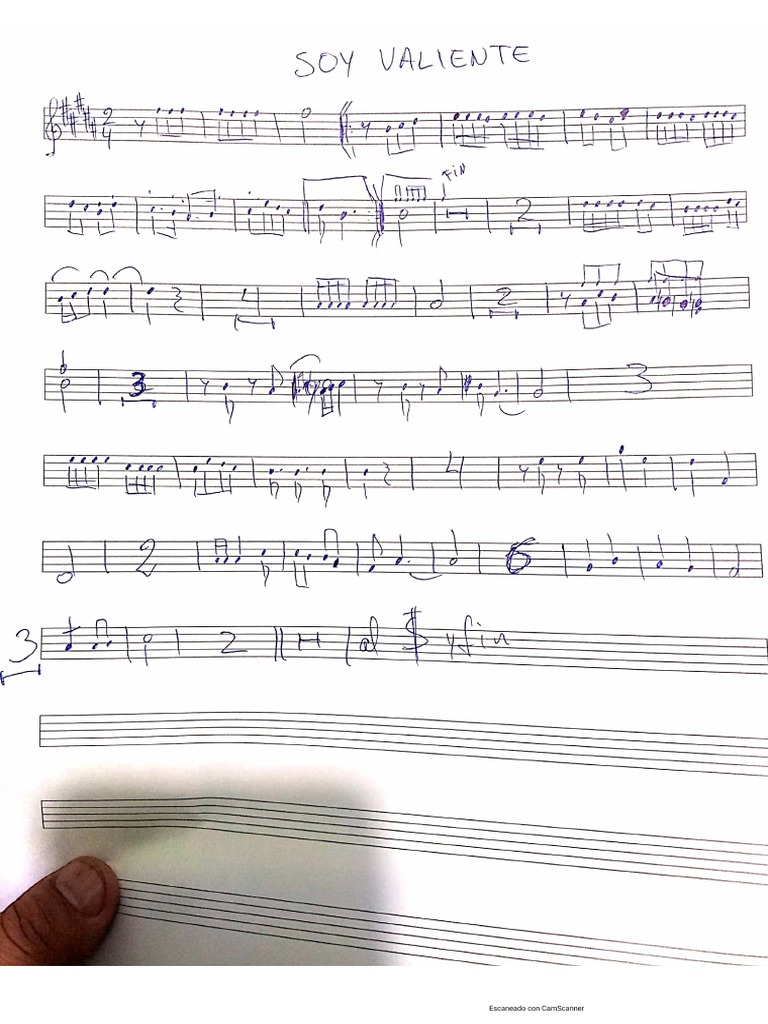 SOY VALIENTE
2
4
FIN
2
4
2
3
3
4
2
6
3
2
al $ y fin
Escaneado con CamScanner